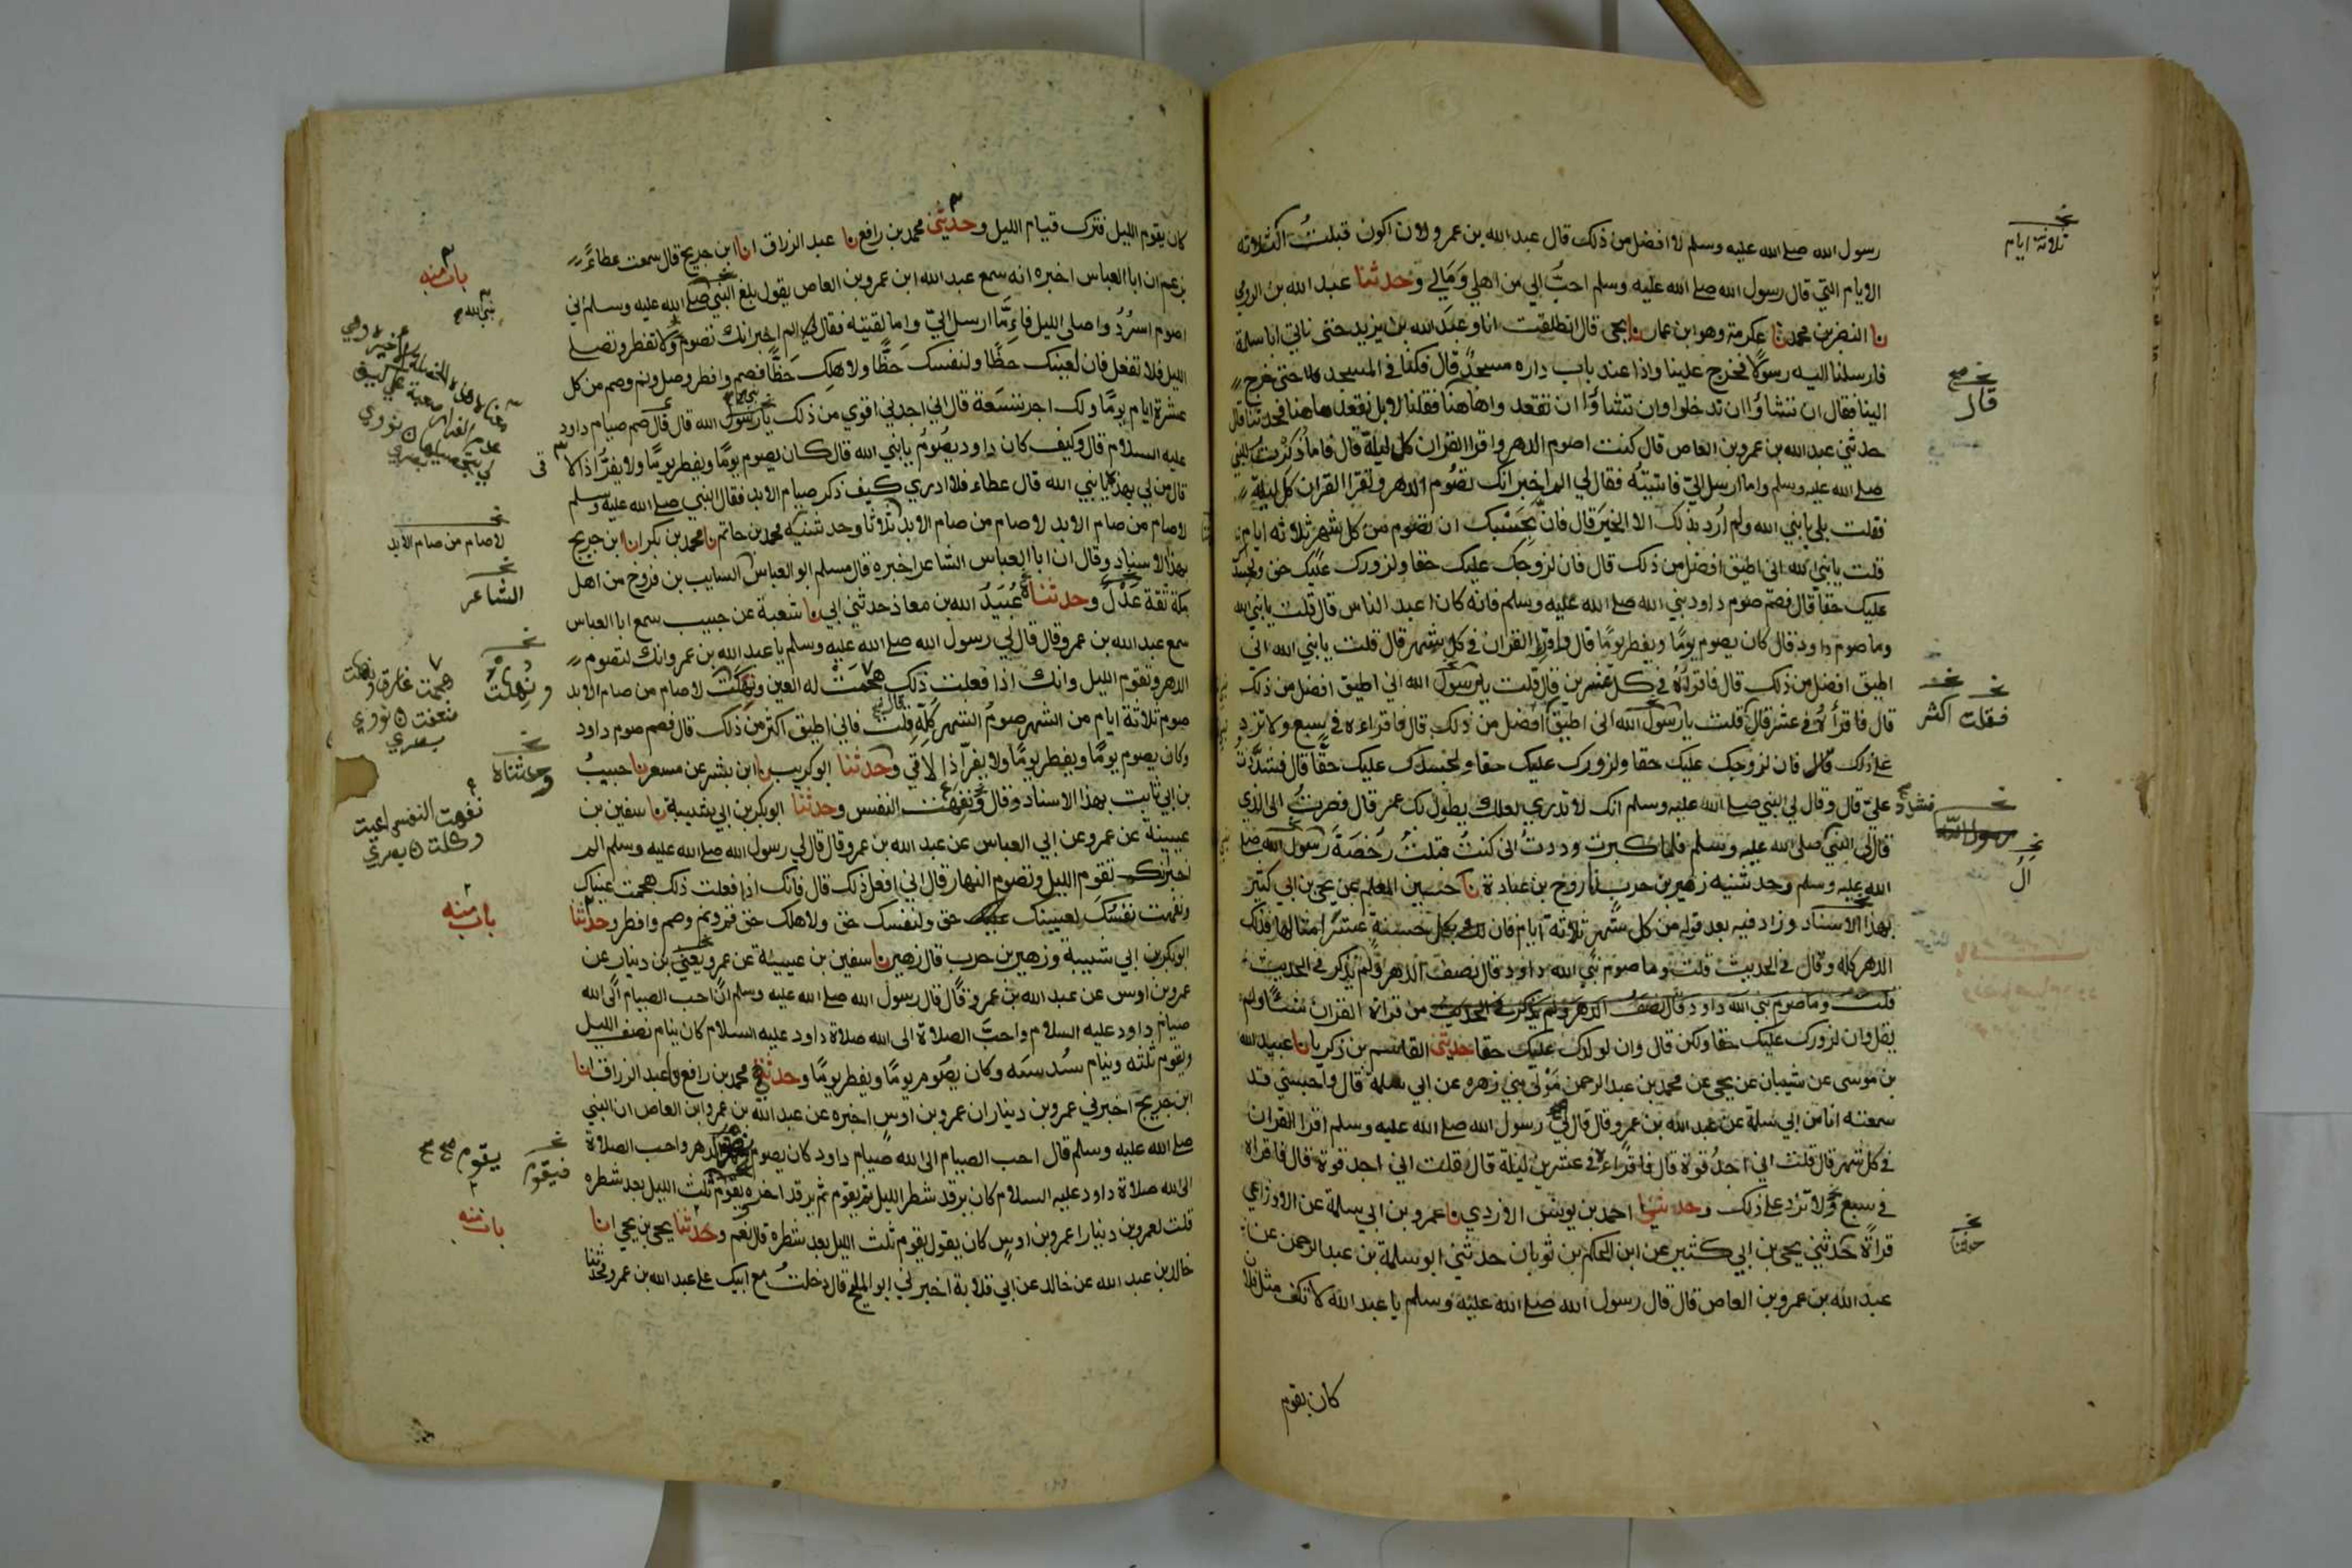 رسول الله صلى الله عليه وسلم لا افضل من ذلك قال عبد الله بن عمرو ولان اكون قبلت الثلاثه
الايام التي قال رسول الله صلى الله عليه وسلم احب الي من اهلي ومالي وحدثنا عبد الله بن الرومي
نا النضر بن محمد نا عكرمة وهو ابن عمار نا يحيى قال انطلقت انا وعبد الله بن يزيد حتى ناتي ابا سلمة
فارسلنا اليه رسولا فخرج علينا واذا عند باب داره مسجد قال فكنا في المسجد حتى خرج
الينا فقال ان تشاؤا ان تدخلوا وان تشاؤا ان تقعدوا هاهنا فقلنا لا بل نقعد هاهنا فحدثنا قال
حدثني عبد الله بن عمرو بن العاص قال كنت اصوم الدهر واقرا القران كل ليلة قال فاما ذكرت للنبي
صلى الله عليه وسلم واما ارسل الي فاتيته فقال لي الم اخبر انك تصوم الدهر وتقرا القران كل ليلة
فقلت بلى يا نبي الله ولم ارد بذلك الا الخير قال فان بحسبك ان تصوم من كل شهر ثلاثه ايام
قلت يا نبي الله اني اطيق افضل من ذلك قال فان لزوجك عليك حقا ولزورك عليك حق ولجسدك
عليك حقا قال فصم صوم داود نبي الله صلى الله عليه وسلم فانه كان اعبد الناس قال قلت يا نبي الله
وما صوم داود قال كان يصوم يوما ويفطر يوما قال واقرا القران في كل شهر قال قلت يا نبي الله اني
اطيق افضل من ذلك قال فاقراه في كل عشرين قال قلت يا رسول الله اني اطيق افضل من ذلك
قال فاقراه في عشر قال قلت يا رسول الله اني اطيق افضل من ذلك قال فاقراءه في سبع ولا تزد
على ذلك قال فان لزوجك عليك حقا ولزورك عليك حقا ولجسدك عليك حقا قال فشددت
فشدد علي قال وقال لي النبي صلى الله عليه وسلم انك لا تدري لعلك يطول بك عمر قال فصرت الى الذي
قال لي النبي صلى الله عليه وسلم فلما كبرت وددت اني كنت قبلت رخصة رسول الله صلى
الله عليه وسلم وحدثنيه زهير بن حرب نا روح بن عبادة نا حسين المعلم عن يحيى بن ابي كثير
بهذا الاسناد وزاد فيه بعد قوله من كل شهر ثلاثة ايام فان لك بكل حسنة عشر امثالها فذلك
الدهر كله وقال في الحديث قلت وما صوم نبي الله داود قال نصف الدهر ولم يذكر في الحديث
قلت وما صوم نبي الله داود قال نصف الدهر ولم يذكر في الحديث من قراة القران شيئا ولم
يقل وان لزورك عليك حقا ولكن قال وان لولدك عليك حقا حدثني القاسم بن زكريا نا عبيد الله
بن موسى عن شيبان عن يحيى عن محمد بن عبد الرحمن مولى بني زهره عن ابي سلمة قال واحسبني قد
سمعته انا من ابي سلمة عن عبد الله بن عمرو قال قال لي رسول الله صلى الله عليه وسلم اقرا القران
في كل شهر قال قلت اني اجد قوة قال فاقراءه في عشرين ليلة قال قلت اني اجد قوة قال فاقراه
في سبع ولا تزد على ذلك وحدثني احمد بن يوسف الازدي نا عمرو بن ابي سلمة عن الاوزاعي
قراة حدثني يحيى بن ابي كثير عن ابن الحكم بن ثوبان حدثني ابو سلمة بن عبد الرحمن عن
عبد الله بن عمرو بن العاص قال قال رسول الله صلى الله عليه وسلم يا عبد الله لا تكن مثل فلان
كان يقوم
ثلاثة ايام
قال
فقلت اكثر
رسول الله
ال
حدثنا
كان يقوم الليل فترك قيام الليل وحدثني محمد بن رافع نا عبد الرزاق انا ابن جريج قال سمعت عطاء
يزعم ان ابا العباس اخبره انه سمع عبد الله ابن عمرو بن العاص يقول بلغ النبي صلى الله عليه وسلم اني
اصوم اسرد واصلي الليل فاما ارسل الي واما لقيته فقال لي الم اخبر انك تصوم ولا تفطر وتصلي
الليل فلا تفعل فان لعينك حظا ولنفسك حظا ولاهلك حظا فصم وافطر وصل ونم وصم من كل
عشرة ايام يوما ولك اجر تسعة قال اني اجدني اقوي من ذلك يا رسول الله قال قال صم صيام داود
عليه السلام قال وكيف كان داود يصوم يا نبي الله قال كان يصوم يوما ويفطر يوما ولا يفر اذا لاقى
قال من لي بهذه يا نبي الله قال عطاء فلا ادري كيف ذكر صيام الابد فقال النبي صلى الله عليه وسلم
لا صام من صام الابد لا صام من صام الابد ثلاثا وحدثنيه محمد بن حاتم نا محمد بن بكر انا ابن جريج
بهذا الاسناد وقال ان ابا العباس الشاعر اخبره قال مسلم ابو العباس السايب بن فروخ من اهل
مكة ثقة عدل وحدثنا عبيد الله بن معاذ حدثني ابي نا شعبة عن حبيب سمع ابا العباس
سمع عبد الله بن عمرو قال قال لي رسول الله صلى الله عليه وسلم يا عبد الله بن عمرو انك لتصوم
الدهر وتقوم الليل وانك اذا فعلت ذلك هجمت له العين ونهكت لا صام من صام الابد
صوم ثلاثة ايام من الشهر صوم الشهر كله قلت فاني اطيق اكثر من ذلك قال فصم صوم داود
وكان يصوم يوما ويفطر يوما ولا يفر اذا لاقي وحدثنا ابو كريب نا ابن بشر عن مسعر نا حبيب
بن ابي ثابت بهذا الاسناد وقال ونفهت النفس وحدثنا ابو بكر بن ابي شيبة نا سفين بن
عيينة عن عمرو عن ابي العباس عن عبد الله بن عمرو قال قال لي رسول الله صلى الله عليه وسلم الم
اخبر انك تقوم الليل وتصوم النهار قال اني افعل ذلك قال فانك اذا فعلت ذلك هجمت عيناك
ونفهت نفسك لعينك حق ولنفسك حق ولاهلك حق قم ونم وصم وافطر وحدثنا
ابو بكر بن ابي شيبة وزهير بن حرب قال زهير نا سفين بن عيينة عن عمرو يعني بن دينار عن
عمرو بن اوس عن عبد الله بن عمرو قال قال رسول الله صلى الله عليه وسلم ان احب الصيام الى الله
صيام داود عليه السلام واحب الصلاة الى الله صلاة داود عليه السلام كان ينام نصف الليل
ويقوم ثلثه وينام سدسه وكان يصوم يوما ويفطر يوما وحدثني محمد بن رافع نا عبد الرزاق انا
ابن جريج اخبرني عمرو بن دينار ان عمرو بن اوس اخبره عن عبد الله بن عمرو ابن العاص ان النبي
صلى الله عليه وسلم قال احب الصيام الى الله صيام داود كان يصوم نصف الدهر واحب الصلاة
الى الله صلاة داود عليه السلام كان يرقد شطر الليل ثم يقوم ثم يرقد اخره يقوم ثلث الليل بعد شطره
قلت لعمرو بن دينار اعمرو بن اوس كان يقول يقوم ثلث الليل بعد شطره قال نعم وحدثنا يحيى بن يحيى انا
خالد بن عبد الله عن خالد عن ابي قلابة اخبرني ابو المليح قال دخلت مع ابيك على عبد الله بن عمرو فحدثنا
باب منه
نبي الله
لا صام من صام الابد
الشاعر
ونهكت
هجمت غارت ونهكت
ضعفت نووي
وحدثناه
نفهت النفس اعيت
وكلت
باب منه
فيقوم
يقوم صح
باب منه